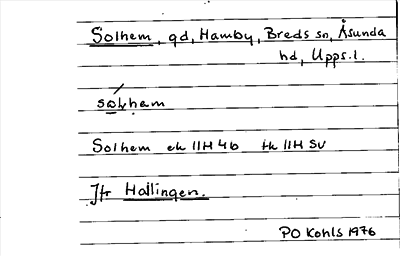 Solhem, gd, Hamby, Breds sn, Åsunda
hd, Upps.l.
sọ́lhem
Solhem ek 11H 4b tk 11H SV
Jfr Hallingen.
PO Kohls 1976